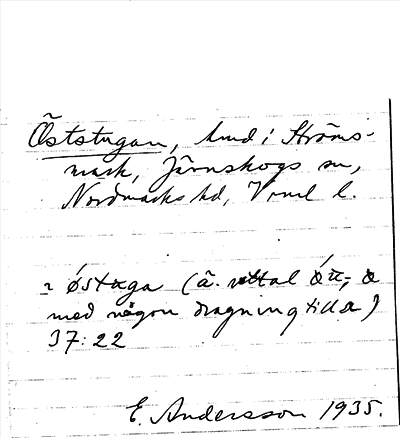 Öststugan, hmd i Ströms-
mark, Järnskogs sn,
Nordmarks hd, Vrml l.
østuga (ä. uttal
med någon dragning till a)
37:22
E. Andersson 1935.